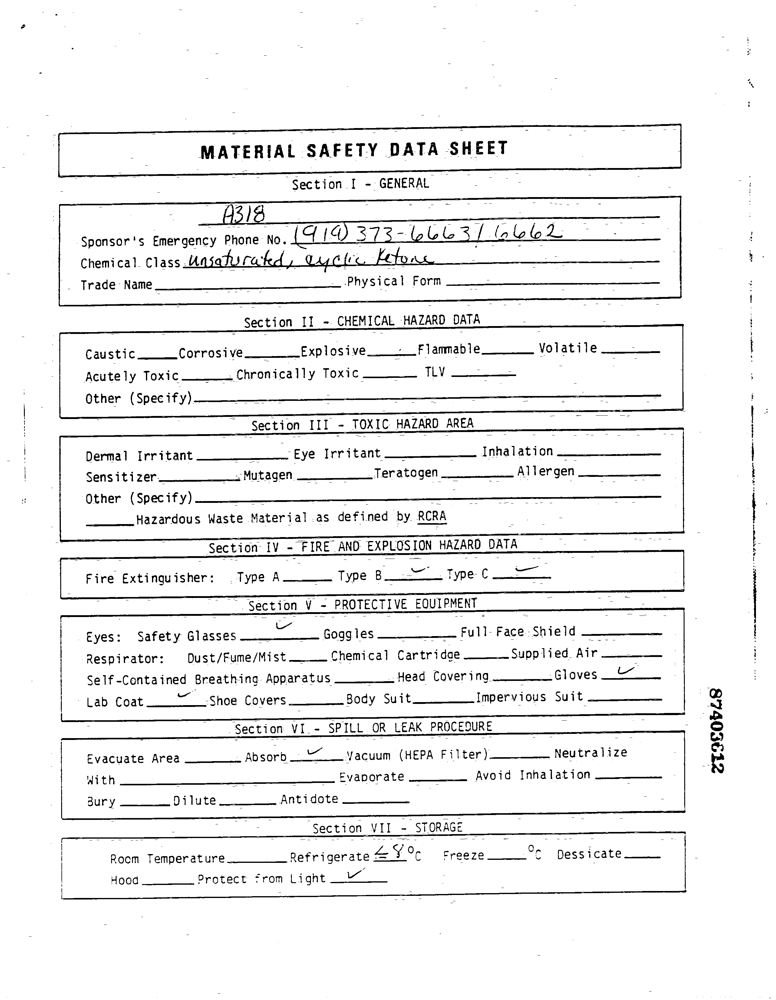 MATERIAL SAFETY DATA SHEET
Section I - GENERAL
A318
Sponsor's Emergency Phone No. (919) 373-6663/6662
Chemical Class unsaturated, cyclic ketone
Trade Name Physical Form
Section II - CHEMICAL HAZARD DATA
Caustic Corrosive Explosive Flammable Volatile
Acutely Toxic Chronically Toxic TLV
Other (Specify)
Section III - TOXIC HAZARD AREA
Dermal Irritant Eye Irritant Inhalation
Sensitizer Mutagen Teratogen Allergen
Other (Specify)
Hazardous Waste Material as defined by RCRA
Section IV - FIRE AND EXPLOSION HAZARD DATA
Fire Extinguisher: Type A Type B ✓ Type C ✓
Section V - PROTECTIVE EQUIPMENT
Eyes: Safety Glasses ✓ Goggles Full Face Shield
Respirator: Dust/Fume/Mist Chemical Cartridge Supplied Air
Self-Contained Breathing Apparatus Head Covering Gloves ✓
Lab Coat ✓ Shoe Covers Body Suit Impervious Suit
Section VI - SPILL OR LEAK PROCEDURE
Evacuate Area Absorb ✓ Vacuum (HEPA Filter) Neutralize
With Evaporate Avoid Inhalation
Bury Dilute Antidote
Section VII - STORAGE
Room Temperature Refrigerate ≤ 8 °C Freeze °C Dessicate
Hood Protect from Light ✓
87403612